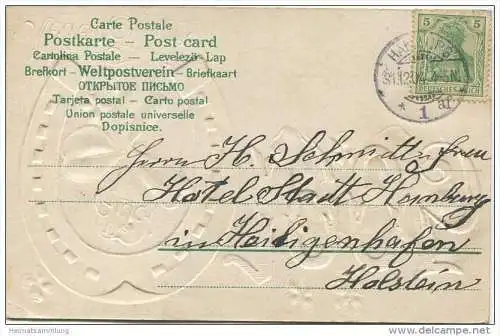 Carte Postale
Postkarte - Post card
Cartolina Postale - Levelezö-Lap
Brefkort - Weltpostverein - Briefkaart
ОТКРЫТОЕ ПИСЬМО
Tarjeta postal - Carto postal
Union postale universelle
Dopisnice.
5 5
DEUTSCHES REICH
1 ar
Herrn H. Schmitt
Hotel Stadt Hamburg
in Heiligenhafen
Holstein
Heimatsammlung